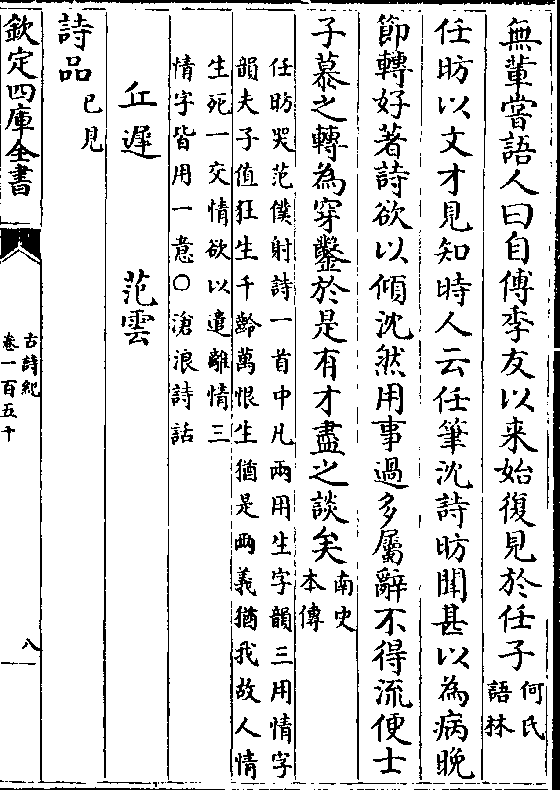 無輩嘗語人曰自傅季友以来始復見於任子何氏語林
任昉以文才見知時人云任筆沈詩昉聞甚以為病晩
節轉好著詩欲以傾沈然用事過多屬辭不得流便士
子慕之轉為穿鑿於是有才盡之談矣南史本傳
任昉哭范僕射詩一首中凡兩用生字韻三用情字
韻夫子值狂生千齡萬恨生猶是兩義猶我故人情
生死一交情欲以遣離情三
情字皆用一意○滄浪詩話
丘遲　范雲
詩品已見
欽定四庫全書
古詩紀
卷一百五十
八